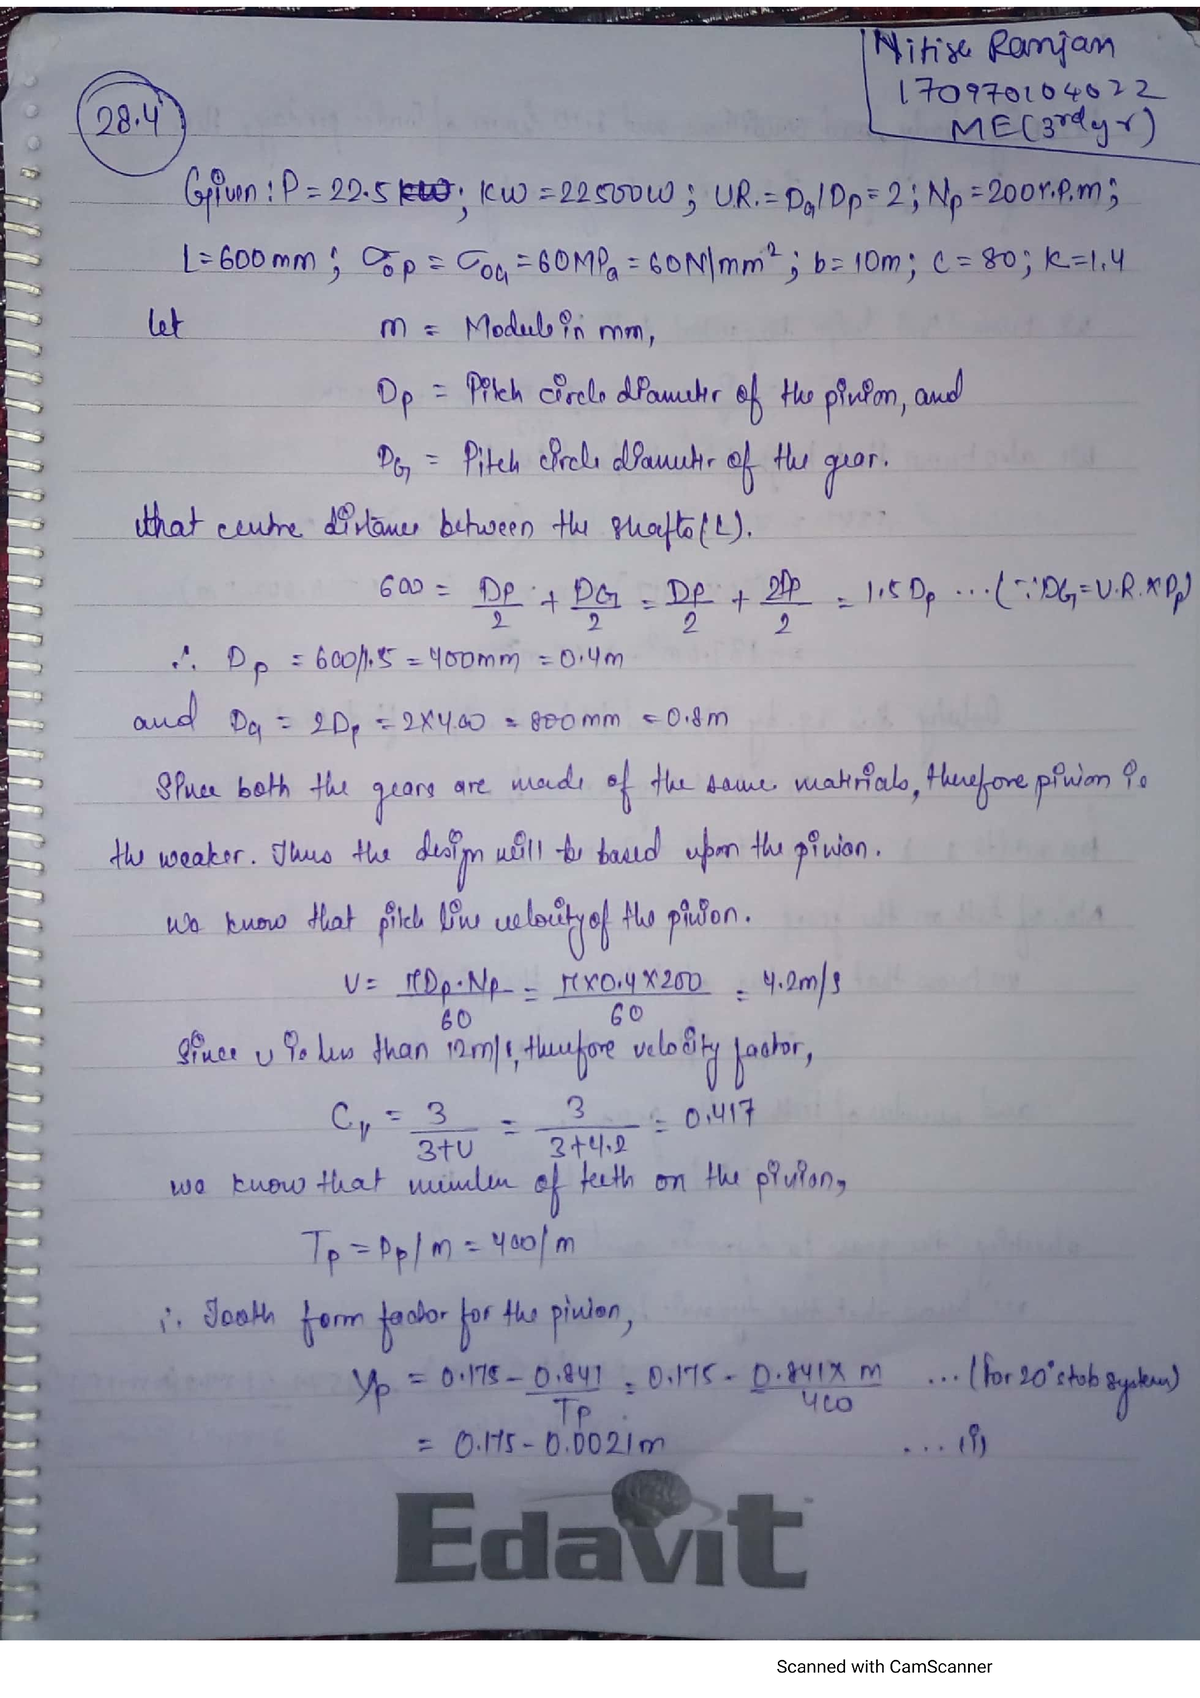 Nitish Ranjan
170970104022
ME(3rd yr)
28.4
Given: P = 22.5 kW; KW = 22500W; V.R. = DG/Dp = 2; Np = 200 r.p.m;
L = 600 mm; σop = σoG = 60MPa = 60N/mm²; b = 10m; c = 80; K = 1.4
let m = Module in mm,
Dp = Pitch circle diameter of the pinion, and
DG = Pitch circle diameter of the gear.
that centre distance between the shafts (L).
600 = Dp/2 + DG/2 = Dp/2 + 2Dp/2 = 1.5 Dp ... (∵ DG = V.R. × Dp)
∴ Dp = 600/1.5 = 400mm = 0.4m
and DG = 2Dp = 2×400 = 800mm = 0.8m
Since both the gears are made of the same materials, therefore pinion is
the weaker. Thus the design will be based upon the pinion.
We know that pitch line velocity of the pinion.
V = πDp·Np/60 = π×0.4×200/60 = 4.2m/s
Since v is less than 12m/s, therefore velocity factor,
Cv = 3/3+v = 3/3+4.2 = 0.417
we know that number of teeth on the pinion,
Tp = Dp/m = 400/m
∴ Tooth form factor for the pinion,
yp = 0.175 - 0.841/Tp = 0.175 - 0.841×m/400 ... (for 20° stub system)
= 0.175 - 0.0021m ... (i)
Edavit
Scanned with CamScanner